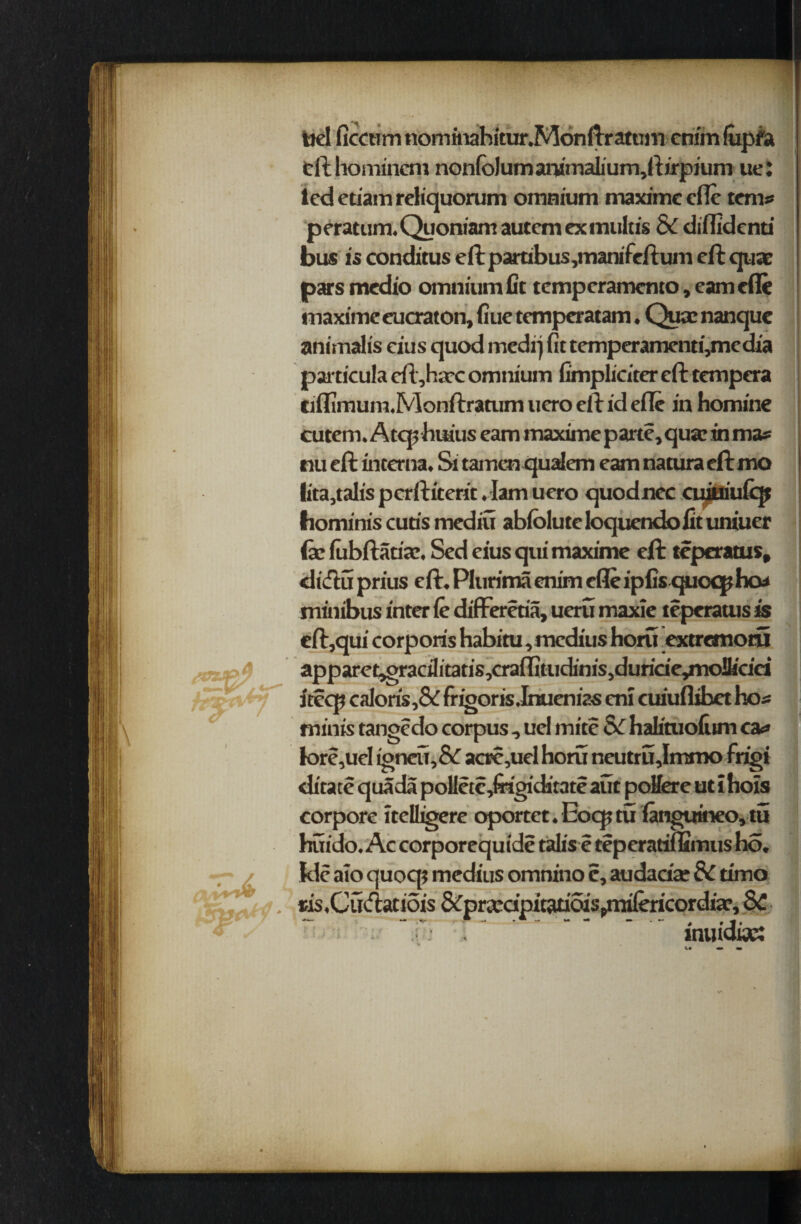 uel siccum nominabitur.Monstratum enim supra
est hominem non solum animalium,stirpium ue:
sed etiam reliquorum omnium maxime esse tem⸗
peratum.Quoniam autem ex multis & dissidenti
bus is conditus est partibus,manifestum est quæ
pars medio omnium sit temperamento, eam esse
maxime eucraton, siue temperatam. Quæ nanque
animalis eius quod medij sit temperamenti,media
particula est,hæc omnium simpliciter est tempera
tissimum.Monstratum uero est id esse in homine
cutem. Atqꝫ huius eam maxime partē, quæ in ma⸗
nu est interna. Si tamen qualem eam natura est mo
lita,talis perstiterit. Iam uero quod nec cuiuiusqꝫ
hominis cutis mediū absolute loquendo sit uniuer
sæ substātiæ. Sed eius qui maxime est tēperatus,
dictū prius est. Plurimā enim esse ipsis quoqꝫ ho⸗
minibus inter se differētiā, uerū maxīe tēperatus is
est,qui corporis habitu, medius horū extremorū
apparet,gracilitatis,crassitudinis,duricie,mollicici
itēqꝫ caloris,& frigoris.Inuenias enī cuiuslibet ho⸗
minis tangēdo corpus, uel mitē & halituosum ca⸗
lorē,uel igneū,& acrē,uel horū neutrū,Immo frigi
ditatē quādā pollētē,frigiditatē aūt pollere ut ī hoīs
corpore ītelligere oportet. Eoqꝫ tū sanguineo, tū
hūido. Ac corpore quidē talis ē tēperatissimus hō.
Idē aīo quoqꝫ medius omnino ē, audaciæ & timo
ris.Cūctatiōis & præcipitatiōis,misericordiæ, &
inuidiæ: